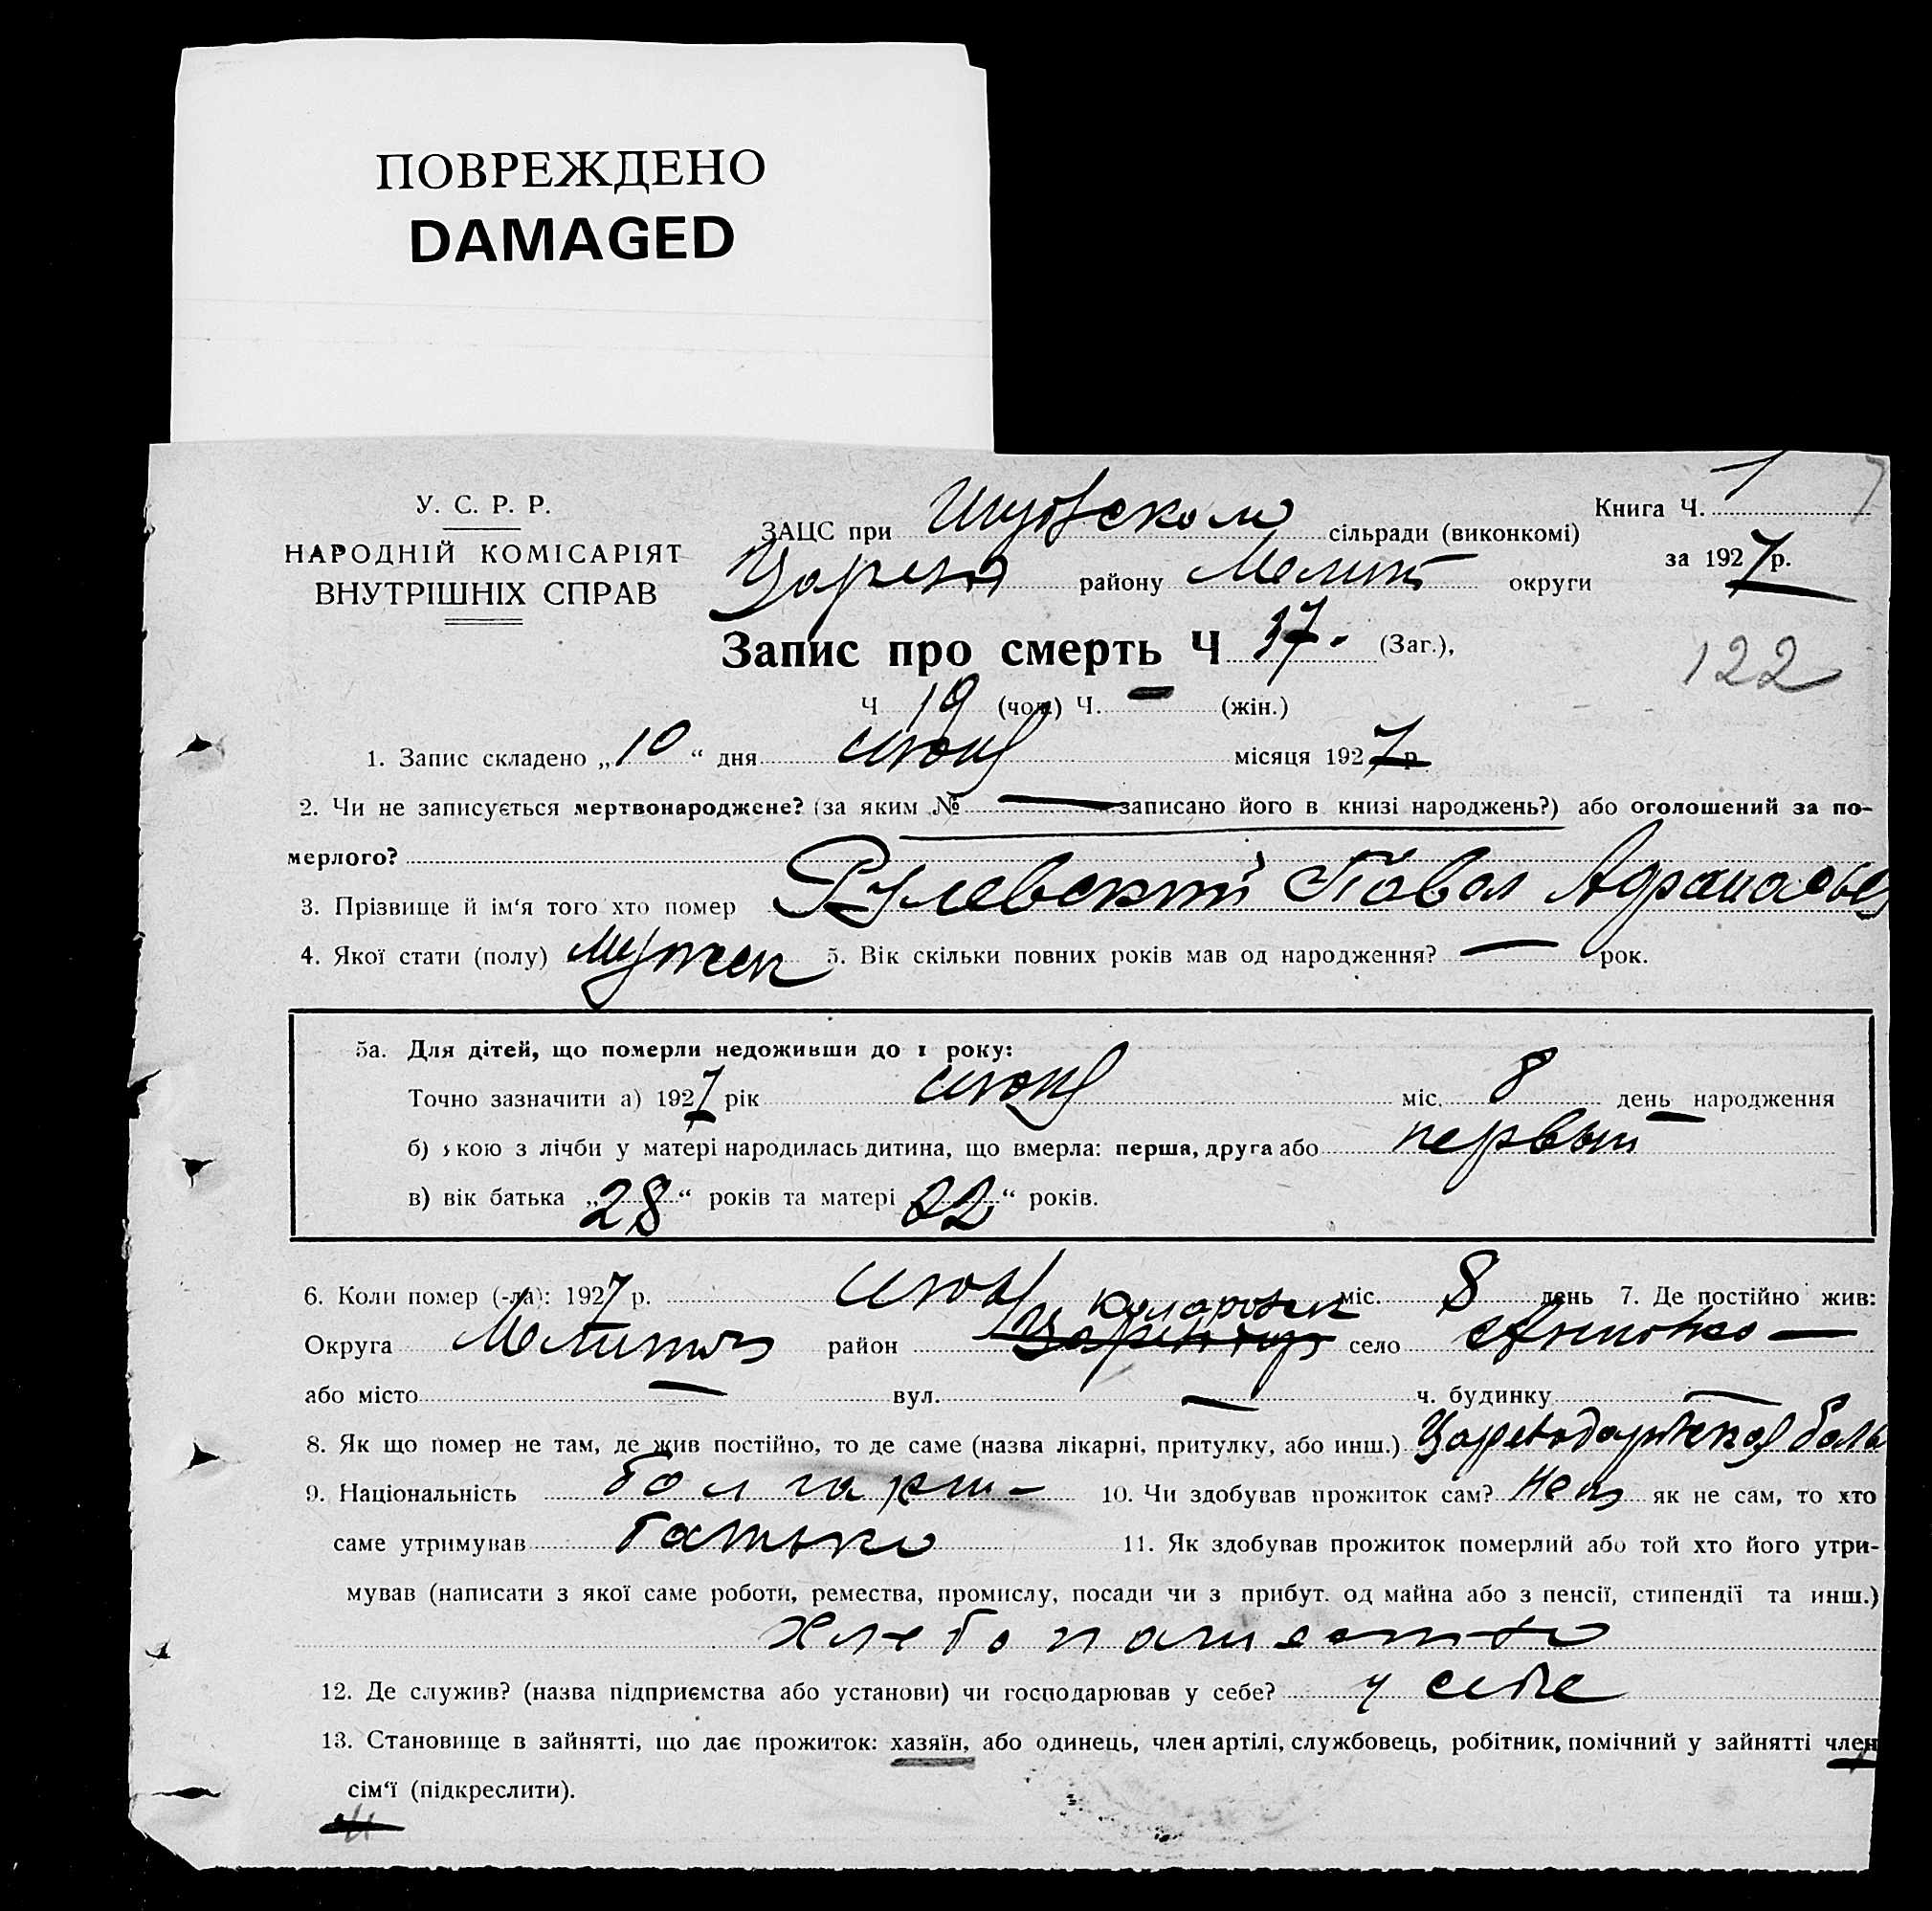 ПОВРЕЖДЕНО
DAMAGED
У. С. Р. Р.
НАРОДНІЙ КОМІСАРІЯТ
ВНУТРІШНІХ СПРАВ
ЗАЦС при сільради (виконкомі)
району Мелит округи
Книга Ч. 1
за 1927 р.
Запис про смерть Ч 37. (Заг.),
122
Ч 19 (чол.) Ч. — (жін.)
1. Запис складено „10“ дня июня місяця 1927 р.
2. Чи не записується мертвонароджене? (за яким № — записано його в книзі народжень?) або оголошений за по-
мерлого?
3. Прізвище й ім'я того хто помер Павел Афанасьев
4. Якої стати (полу) Мужск 5. Вік скільки повних років мав од народження? — рок.
5а. Для дітей, що померли недоживши до 1 року:
Точно зазначити а) 1927 рік июня міс. 8 день народження
б) якою з лічби у матері народилась дитина, що вмерла: перша, друга або первый
в) вік батька „28“ років та матері „22“ років.
6. Коли помер (-ла): 1927 р. июня міс. 8 день 7. Де постійно жив:
Округа Мелитоп район Коларовск село
або місто — вул. — ч. будинку —
8. Як що помер не там, де жив постійно, то де саме (назва лікарні, притулку, або инш.) боль
9. Національність болгарин 10. Чи здобував прожиток сам? Нет як не сам, то хто
саме утримував батько 11. Як здобував прожиток померлий або той хто його утри-
мував (написати з якої саме роботи, ремества, промислу, посади чи з прибут. од майна або з пенсії, стипендії та инш.)
Хлебопашество
12. Де служив? (назва підприємства або установи) чи господарював у себе? у себе
13. Становище в зайнятті, що дає прожиток: хазяїн, або одинець, член артілі, службовець, робітник, помічний у зайнятті член
сім'ї (підкреслити).